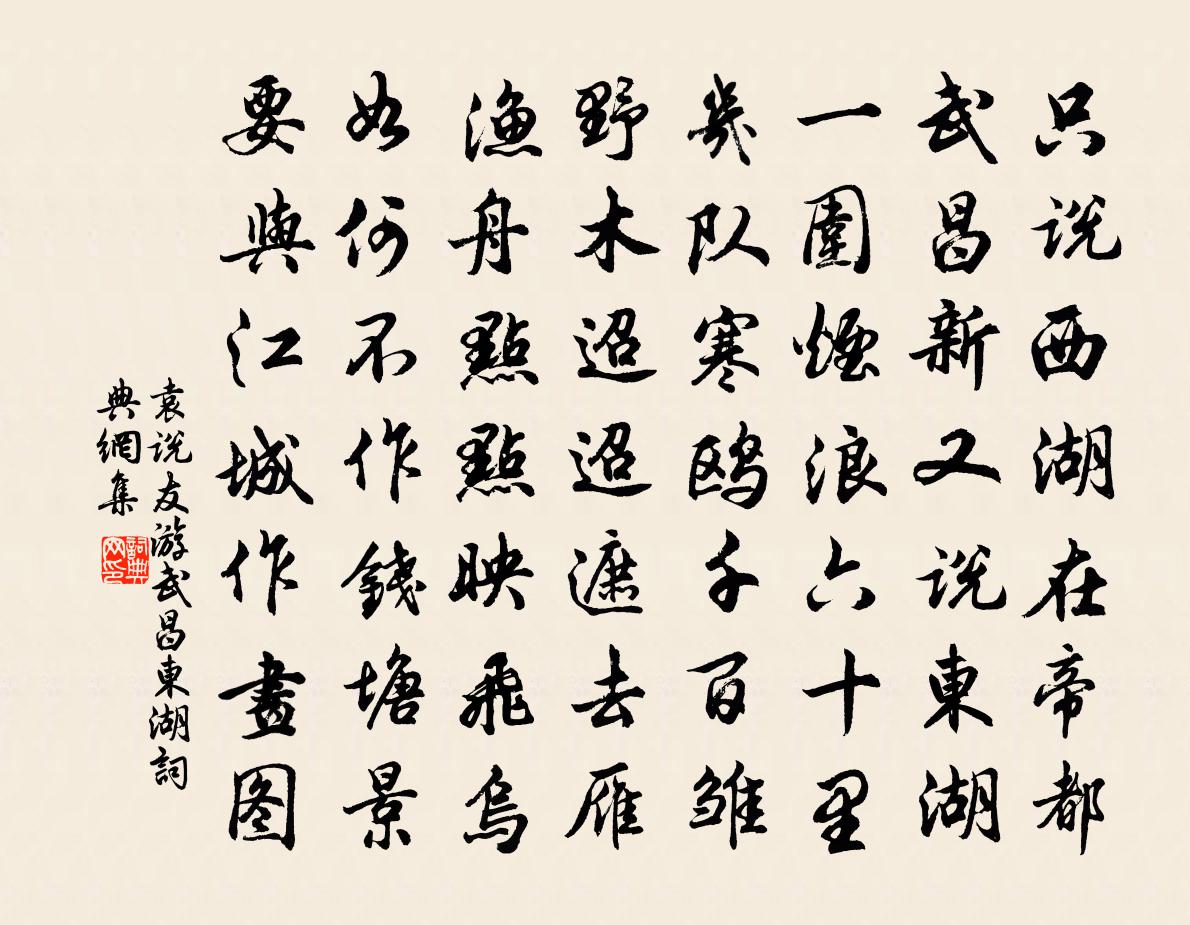 只说西湖在帝都
武昌新又说東湖
一圍煙浪六十里
幾队寒鸥千百雏
野木迢迢遮去雁
渔舟點點映飛烏
如何不作錢塘景
要與江城作畫图
袁说友游武昌東湖詞
典網集
詞典网印